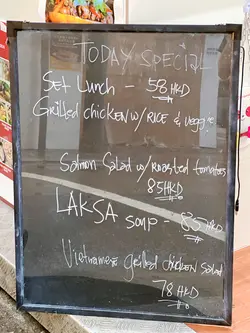 TODAY SPECIAL
Set Lunch - 58 HKD
Grilled chicken w/ RICE & veggie
Salmon Salad w/ roasted tomatoes
85HKD
LAKSA soup - 85 HKD
Vietnamese grilled chicken salad
78 HKD